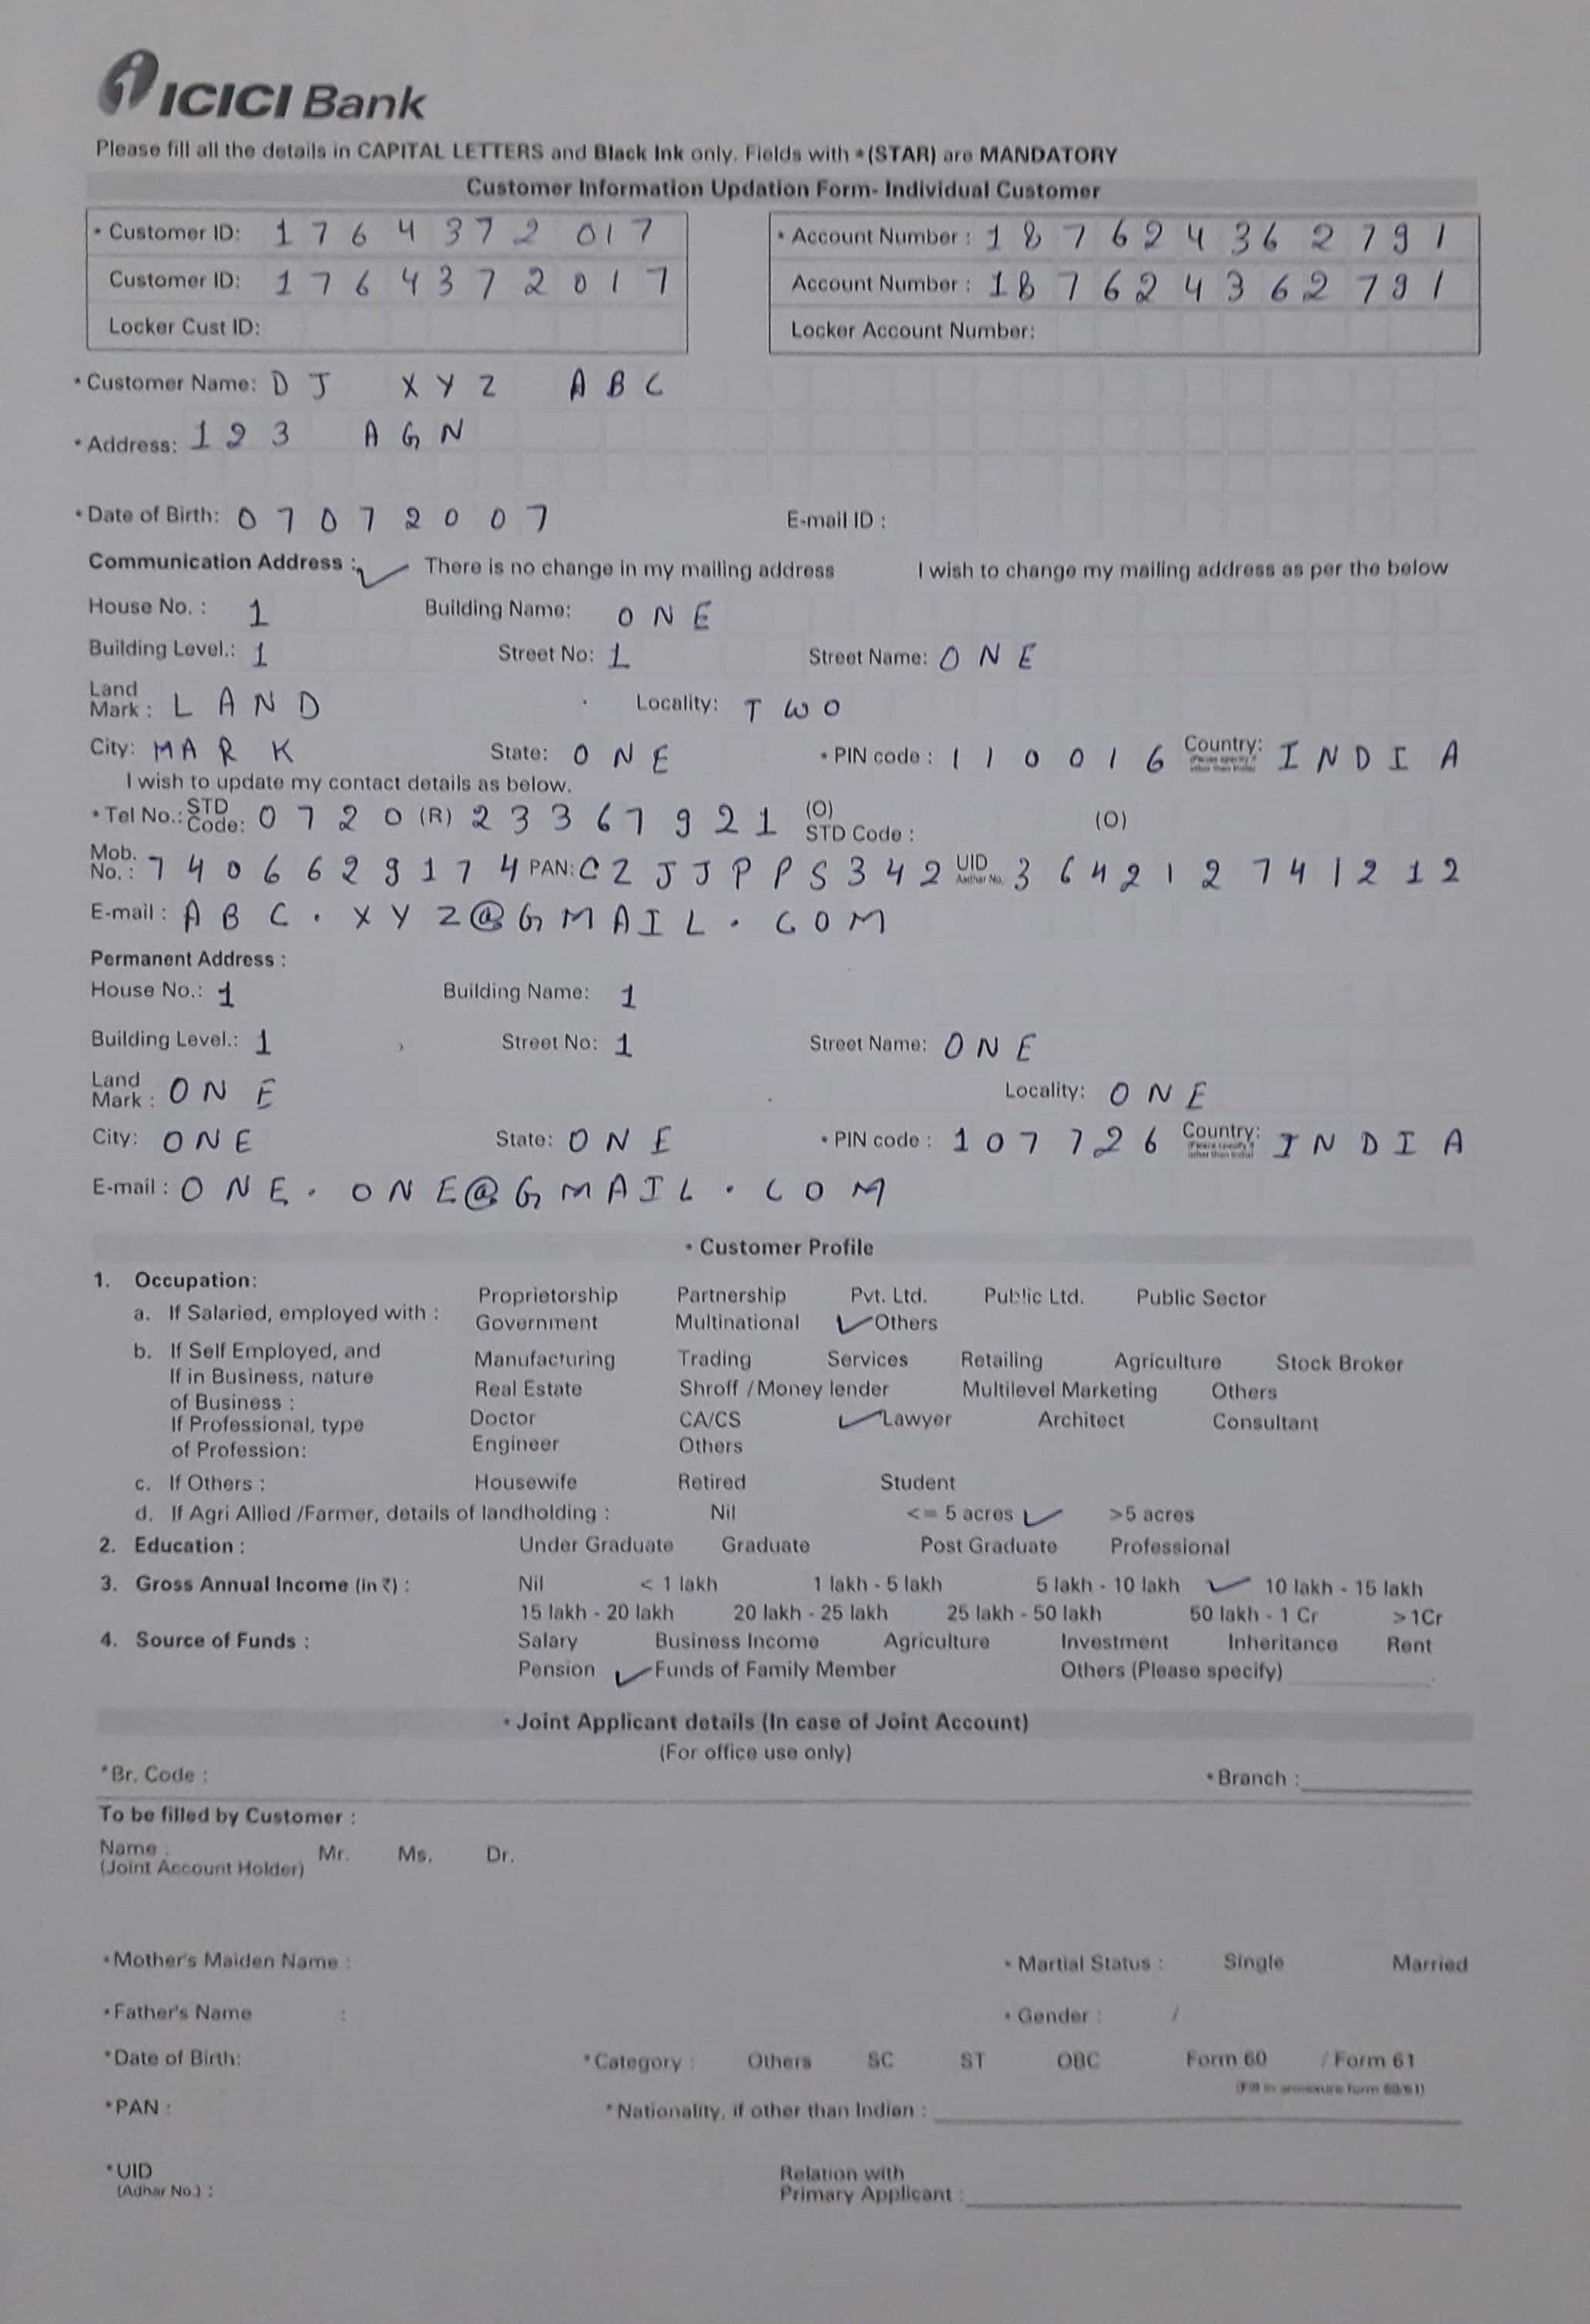 ICICI Bank
Please fill all the details in CAPITAL LETTERS and Black Ink only. Fields with *(STAR) are MANDATORY
Customer Information Updation Form- Individual Customer
* Customer ID: 1764372017 * Account Number : 187624362791
Customer ID: 1764372017 Account Number : 187624362791
Locker Cust ID: Locker Account Number:
* Customer Name: DJ XYZ ABC
* Address: 123 AGN
* Date of Birth: 07072007 E-mail ID :
Communication Address : ✓ There is no change in my mailing address I wish to change my mailing address as per the below
House No. : 1 Building Name: ONE
Building Level.: 1 Street No: 1 Street Name: ONE
Land Mark : LAND Locality: TWO
City: MARK State: ONE * PIN code : 110016 Country: INDIA
I wish to update my contact details as below.
* Tel No.: STD Code: 0720 (R) 23367921 (O) STD Code : (O)
Mob. No. : 7406629174 PAN: CZJJPPS342 UID Aadhar No. 364212741212
E-mail : ABC.XYZ@GMAIL.COM
Permanent Address :
House No.: 1 Building Name: 1
Building Level.: 1 Street No: 1 Street Name: ONE
Land Mark : ONE Locality: ONE
City: ONE State: ONE * PIN code : 107726 Country: INDIA
E-mail : ONE.ONE@GMAIL.COM
* Customer Profile
1. Occupation:
a. If Salaried, employed with : Proprietorship Partnership Pvt. Ltd. Public Ltd. Public Sector
Government Multinational ✓ Others
b. If Self Employed, and If in Business, nature of Business : Manufacturing Trading Services Retailing Agriculture Stock Broker
Real Estate Shroff / Money lender Multilevel Marketing Others
If Professional, type of Profession: Doctor CA/CS ✓ Lawyer Architect Consultant
Engineer Others
c. If Others : Housewife Retired Student
d. If Agri Allied /Farmer, details of landholding : Nil <= 5 acres ✓ >5 acres
2. Education : Under Graduate Graduate Post Graduate Professional
3. Gross Annual Income (in ₹) : Nil < 1 lakh 1 lakh - 5 lakh 5 lakh - 10 lakh ✓ 10 lakh - 15 lakh
15 lakh - 20 lakh 20 lakh - 25 lakh 25 lakh - 50 lakh 50 lakh - 1 Cr >1Cr
4. Source of Funds : Salary Business Income Agriculture Investment Inheritance Rent
Pension ✓ Funds of Family Member Others (Please specify)
* Joint Applicant details (In case of Joint Account)
(For office use only)
*Br. Code : * Branch :
To be filled by Customer :
Name : Mr. Ms. Dr.
(Joint Account Holder)
*Mother's Maiden Name : * Martial Status : Single Married
*Father's Name : * Gender : /
*Date of Birth: *Category : Others SC ST OBC Form 60 / Form 61
(Fill in annexure form 60/61)
*PAN : *Nationality, if other than Indian :
*UID Relation with
(Adhar No.) : Primary Applicant :